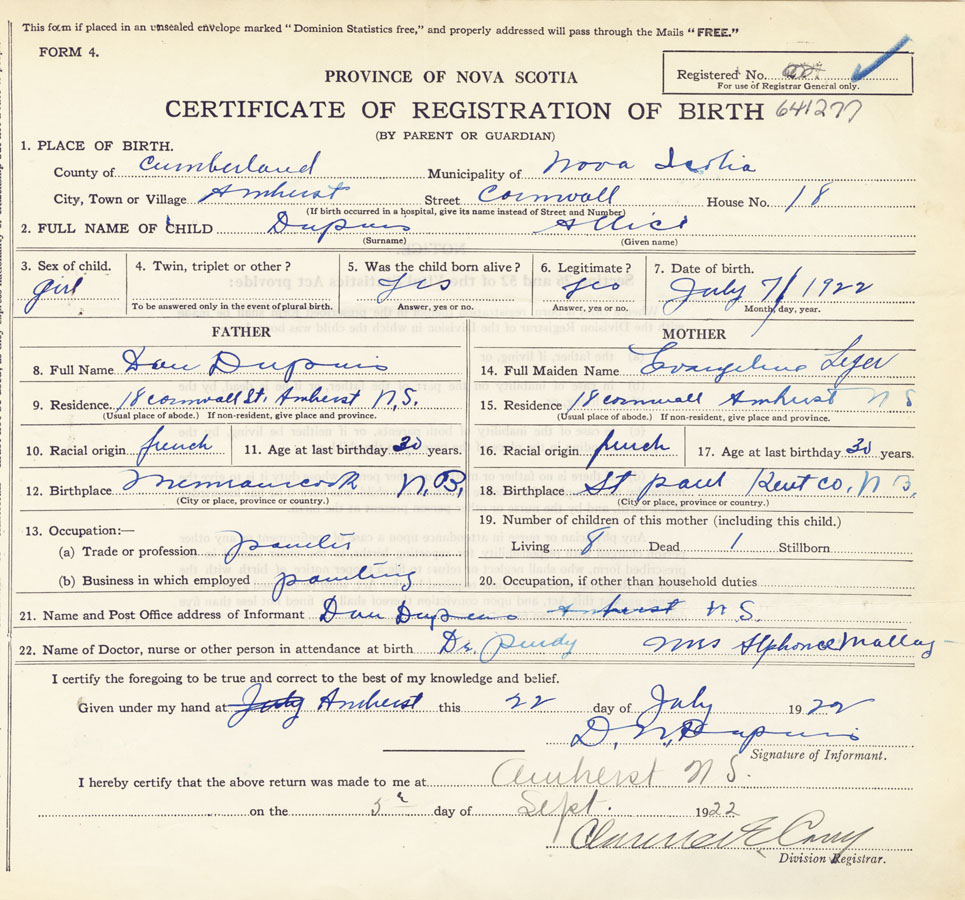 This form if placed in an unsealed envelope marked "Dominion Statistics free," and properly addressed will pass through the Mails "FREE."
FORM 4.
PROVINCE OF NOVA SCOTIA
Registered No.
For use of Registrar General only.
CERTIFICATE OF REGISTRATION OF BIRTH 641277
(BY PARENT OR GUARDIAN)
1. PLACE OF BIRTH.
County of Cumberland Municipality of Nova Scotia
City, Town or Village Amherst Street Cornwall House No. 18
(If birth occurred in a hospital, give its name instead of Street and Number)
2. FULL NAME OF CHILD Dupuis Allice
(Surname) (Given name)
3. Sex of child. 4. Twin, triplet or other? 5. Was the child born alive? 6. Legitimate? 7. Date of birth.
girl yes yes July 7/1922
To be answered only in the event of plural birth. Answer, yes or no. Answer, yes or no. Month, day, year.
FATHER MOTHER
8. Full Name Dan Dupuis 14. Full Maiden Name Evangeline Leger
9. Residence. 18 cornwall St. Amherst N.S. 15. Residence 18 cornwall Amherst N S
(Usual place of abode.) If non-resident, give place and province. (Usual place of abode.) If non-resident, give place and province.
10. Racial origin french 11. Age at last birthday 30 years. 16. Racial origin french 17. Age at last birthday 30 years.
12. Birthplace Memramcook N.B. 18. Birthplace St paul Kent co. N B.
(City or place, province or country.) (City or place, province or country.)
13. Occupation:— 19. Number of children of this mother (including this child.)
(a) Trade or profession painter Living 8 Dead 1 Stillborn
(b) Business in which employed painting 20. Occupation, if other than household duties
21. Name and Post Office address of Informant Dan Dupuis Amherst N.S.
22. Name of Doctor, nurse or other person in attendance at birth. Dr. purdy Mrs Alphonce Mallay
I certify the foregoing to be true and correct to the best of my knowledge and belief.
Given under my hand at July Amherst this 22 day of July 1922
D. N. Dupuis
Signature of Informant.
I hereby certify that the above return was made to me at Amherst N S.
on the 5 day of Sept. 1922
Division Registrar.